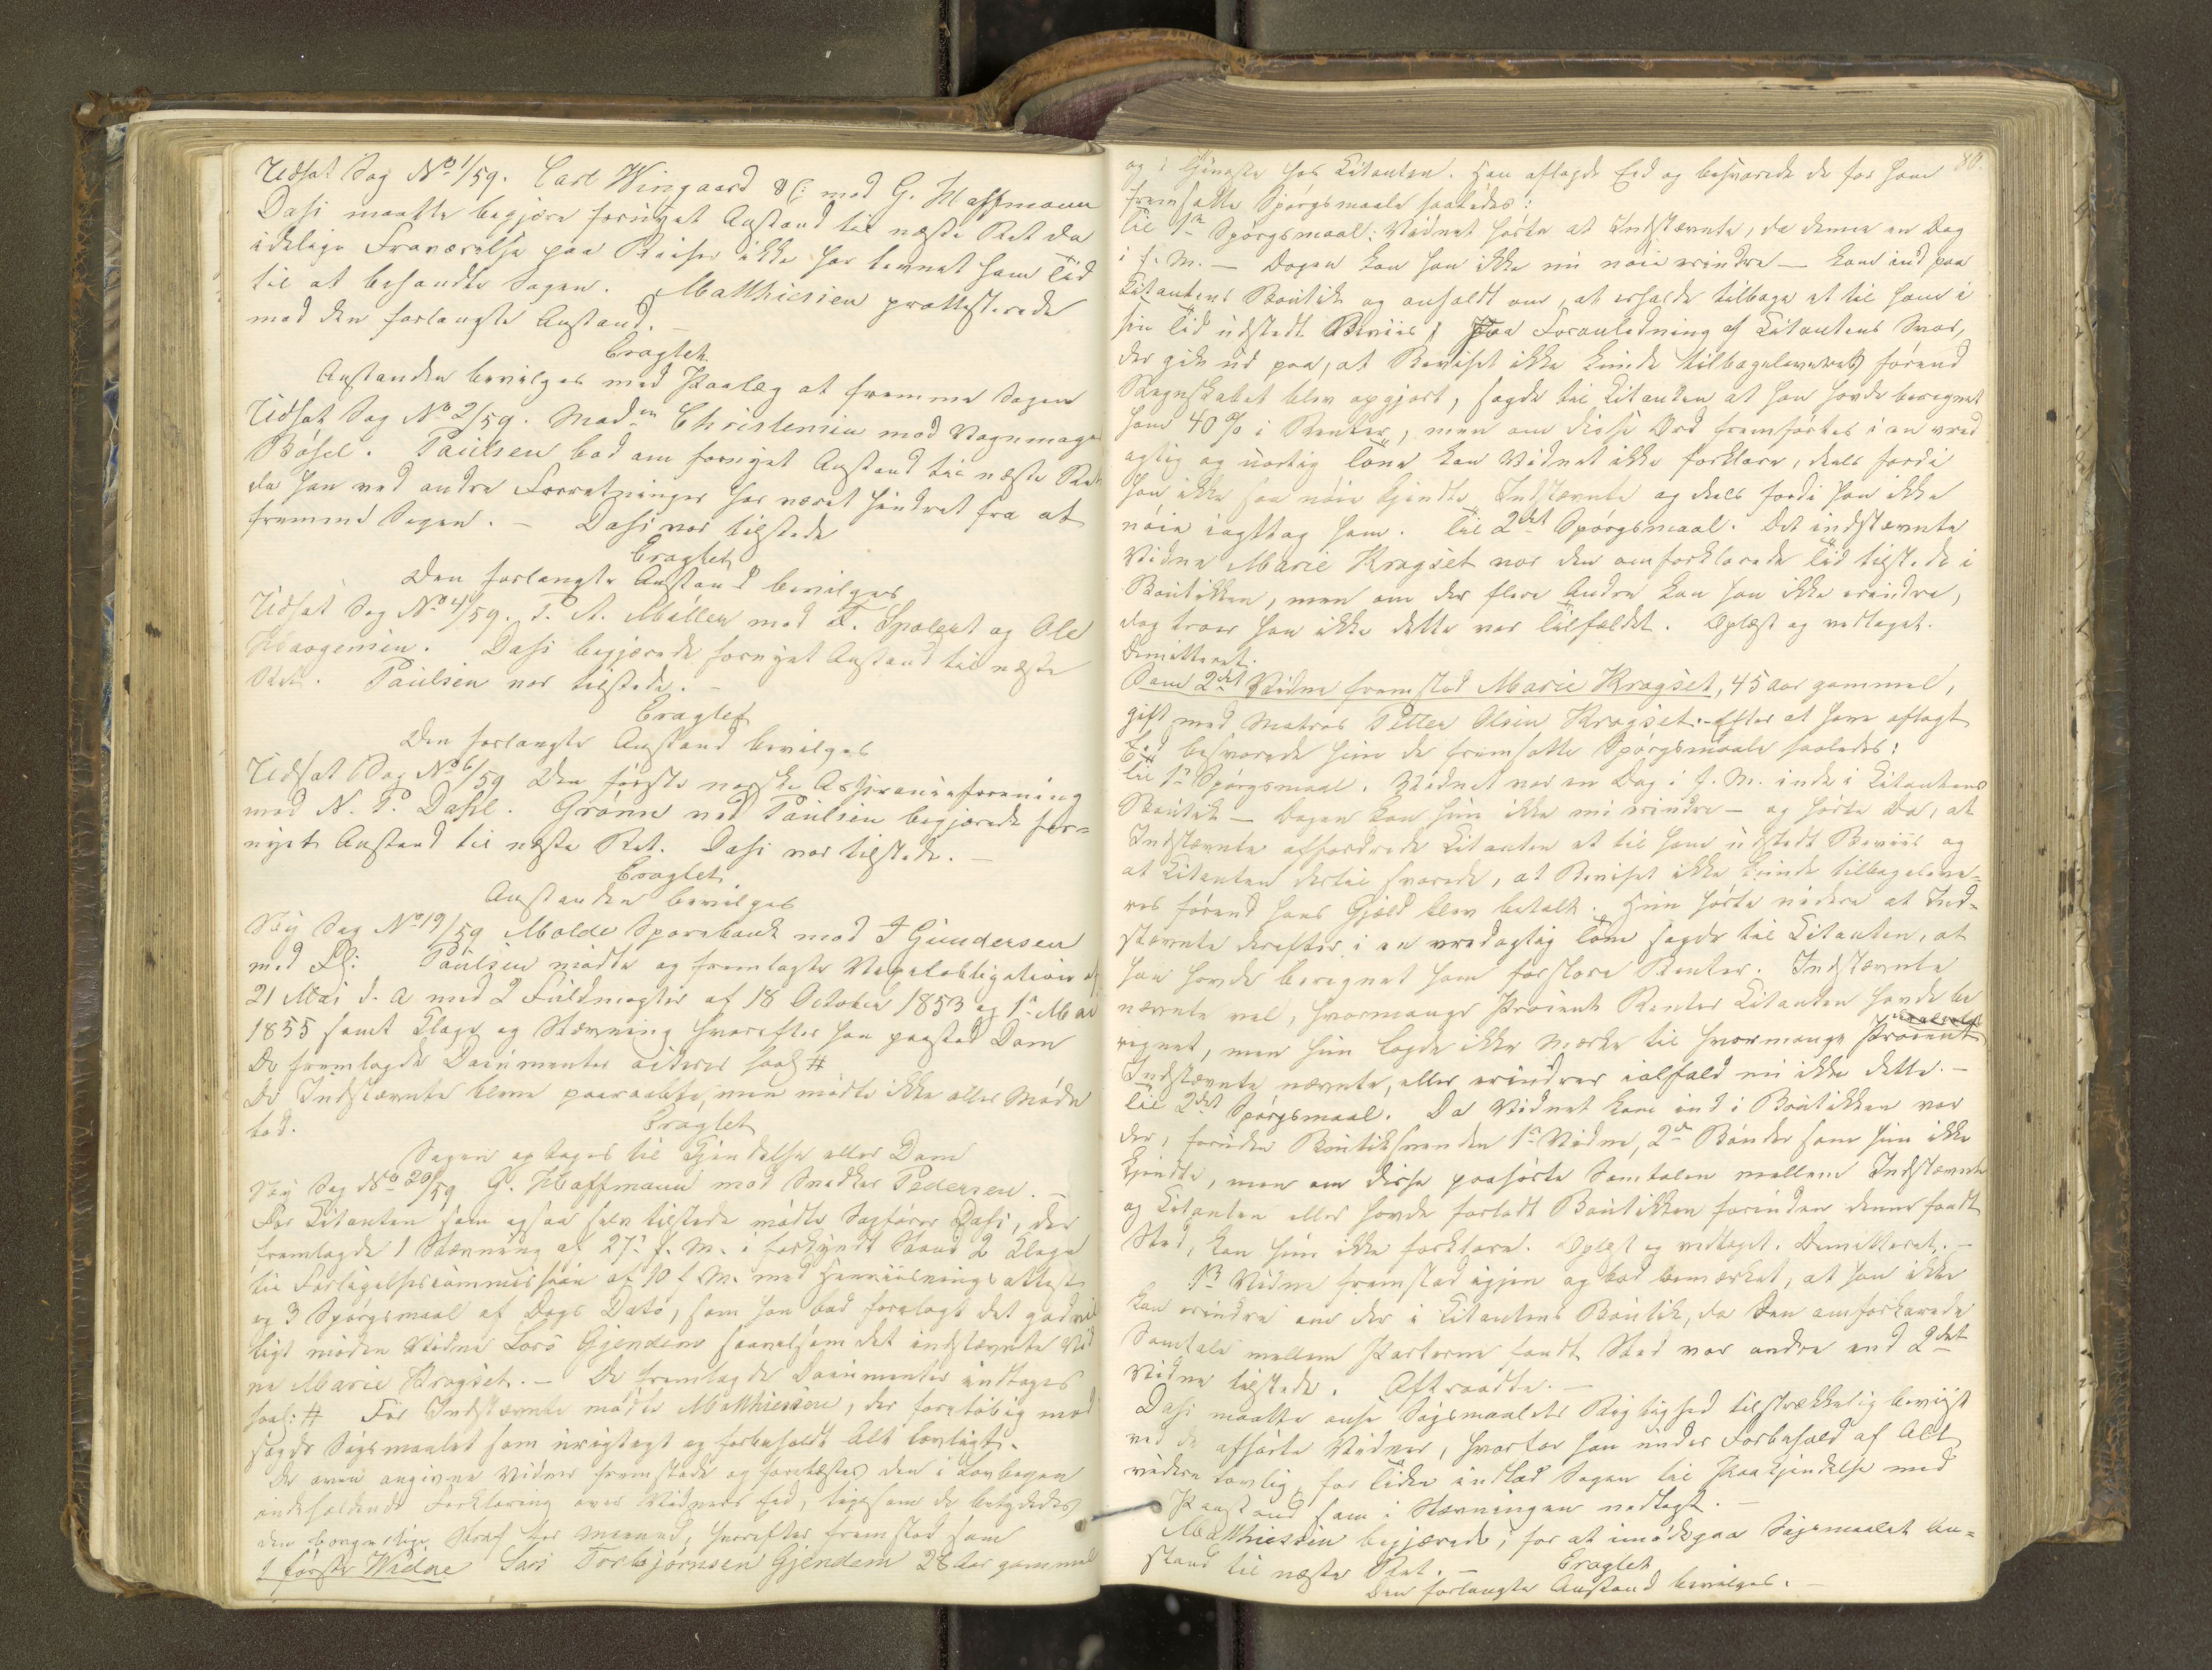 Udsat Sag No 1/59. Carl Wingaard &c: mod G. Hoffmann
Dahl maatte begjære fornyet Anstand til næste Ret da
idelige Fraværelse paa Reiser ikke har levnet ham Tid
til at behandle Sagen. Matthiesien prottesterede
mod den forlangte Anstand. –
Eragtet
Anstanden bevilges med Paalæg at fremme Sagen
Udsat Sag No 2/59. Madm Christensen mod Vognmager
Bósel. Paulsen bad om fornyet Anstand til næste Ret
da han ved andre Forretninger har været hindret fra at
fremme Sagen. – Dahl var tilstede
Eragtet
Den forlangte Anstand bevilges
Udsat Sag No 4/59. P. A. Müller mod F. Spolert og Ole
Haagensen. Dahl begjærede fornyet Anstand til næste
Ret. Paulsen var tilstede. –
Eragtet
Den forlangte Anstand bevilges
Udsat Sag No 6/59 Den første norske Assuranceforening
mod N. P. Dahl. Grønn ved Paulsen begjærede for=
nyet Anstand til næste Ret. Dahl var tilstede. –
Eragtet
Anstanden bevilges
Ny Sag No 19/59 Molde Sparebank mod I Gundersen
med Fl: Paulsen mødte og fremlagte Vexelobligation af
21 Mai d. A med 2 Fuldmagter af 18 October 1853 og 1ste Mai
1855 samt Klage og Stævning hvorefter han paastod Dom
De fremlagde Documenter acteres saal #
De Indstævnte bleve paaraabte, men mødte ikke eller Møde
bod.
Eragtet
Sagen optages til Kjendelse eller Dom
Ny Sag No 20/59 G. Hoffmann mod Snedker Pedersen. –
For Citanten som ogsaa selv tilstede mødte Sagfører Dahl, der
fremlagde 1 Stævning af 27de f. M. i forkyndt Stand 2 Klage
til Forligelsescommission af 10 f. M. med Henviisningsattest
og 3 Spørgsmaal af Dags Dato, som han bad forelagt det godvil
ligt mødende Vidne Lars Gjendem saavelsom det indstævnte Vid
ne Marie Kragset. – De fremlagde Documenter indtages
saal: # For Indstævnte mødte Matthiessen, der foreløbig mod
sagde Søgsmaalet som urigtigt og forbeholdt Alt lovligt.
De oven angivne Vidner fremstode og forelæstes den i Lovbogen
indeholdende Forklaring over Vidners Eed, ligesom de betydedes
den borgerlige Straf for Meened, hvorefter fremstod som
1 første Vidne Lars Torbjørnsen Gjendem 28 Aar gammel
80.
og i Tjeneste hos Citanten. Han aflagde Eed og besvarede de for ham
fremsatte Spørgsmaale saaledes:
Til 1ste Spørgsmaal: Vidnet hørte at Indstævnte, da denne en Dag
i f. M. – Dagen kan han ikke nu nøie erindre – kom ind paa
Citantens Boutik og anholdt om, at erholde tilbage et til ham i
sin Tid udstedt Beviis, paa Foranledning af Citantens Svar,
der gik ud paa, at Beviset ikke kunde tilbageleveres førend
Regnskabet blev opgjort, sagde til Citanten at han havde beregnet
ham 40% i Renter, men om disse Ord fremførtes i en vred
agtig og uartig Tone kan Vidnet ikke forklare, deels fordi
han ikke saa nøie kjendte Indstævnte og deels fordi han ikke
nøie iagttog ham. Til 2det Spørgsmaal. Det indstævnte
Vidne Marie Kragset var den omforklarede Tid tilstede i
Boutikken, men om der flere Andre kan han ikke erindre,
dog troer han ikke dette var Tilfældet. Oplæst og vedtaget.
Demitteret.
Som 2det Vidne fremstod Marie Kragset, 45 Aar gammel,
gift med Matros Petter Olsen Kragset. – Efter at have aflagt
Eed besvarede hun de fremsatte Spørgsmaale saaledes:
Til 1ste Spørgsmaal. Vidnet var en Dag i f. M. inde i Citantens
Boutik – Dagen kan hun ikke nu erindre – og hørte da, at
Indstævnte affordrede Citanten et til ham udstedt Beviis og
at Citanten dertil svarede, at Beviset ikke kunde tilbageleve=
res førend hans Gjæld blev betalt. Hun hørte videre at Ind=
stævnte derefter i en vredagtig Tone sagde til Citanten, at
han havde beregnet ham for store Renter. Indstævnte
nævnte vel, hvormange Procent Renter Citanten havde be
regnet, men hun lagde ikke Mærke til hvormange Procent
Indstævnte nævnte, eller erindrer ialfald nu ikke dette. –
Til 2det Spørgsmaal. Da Vidnet kom ind i Boutikken var
der, foruden Boutiksvenden 1ste Vidne, 2de Bønder som hun ikke
kjendte, men om disse paahørte Samtalen mellem Indstævnte
og Citanten eller havde forladt Boutikken forinden denne fandt
Sted, kan hun ikke forklare. Oplæst og vedtaget. Demitteret. –
1ste Vidne fremstod igjen og bad bemærket, at han ikke
kan erindre om der i Citantens Boutik, da den omforklarede
Samtale mellem Parterne fandt Sted var andre end 2det
Vidne tilstede. Aftraadte. –
Dahl maatte anse Søgsmaalets Rigtighed tilstrækkelig beviist
ved de afhørte Vidner, hvorfor han under Forbehold af Alt
videre lovlig for Tiden indlod Sagen til Paakjendelse med
Paastand som i Stævningen nedlagt. –
Matthiessen begjærede, for at imødegaa Søgsmaalet An=
stand til næste Ret. –
Eragtet
Den forlangte Anstand bevilges. –